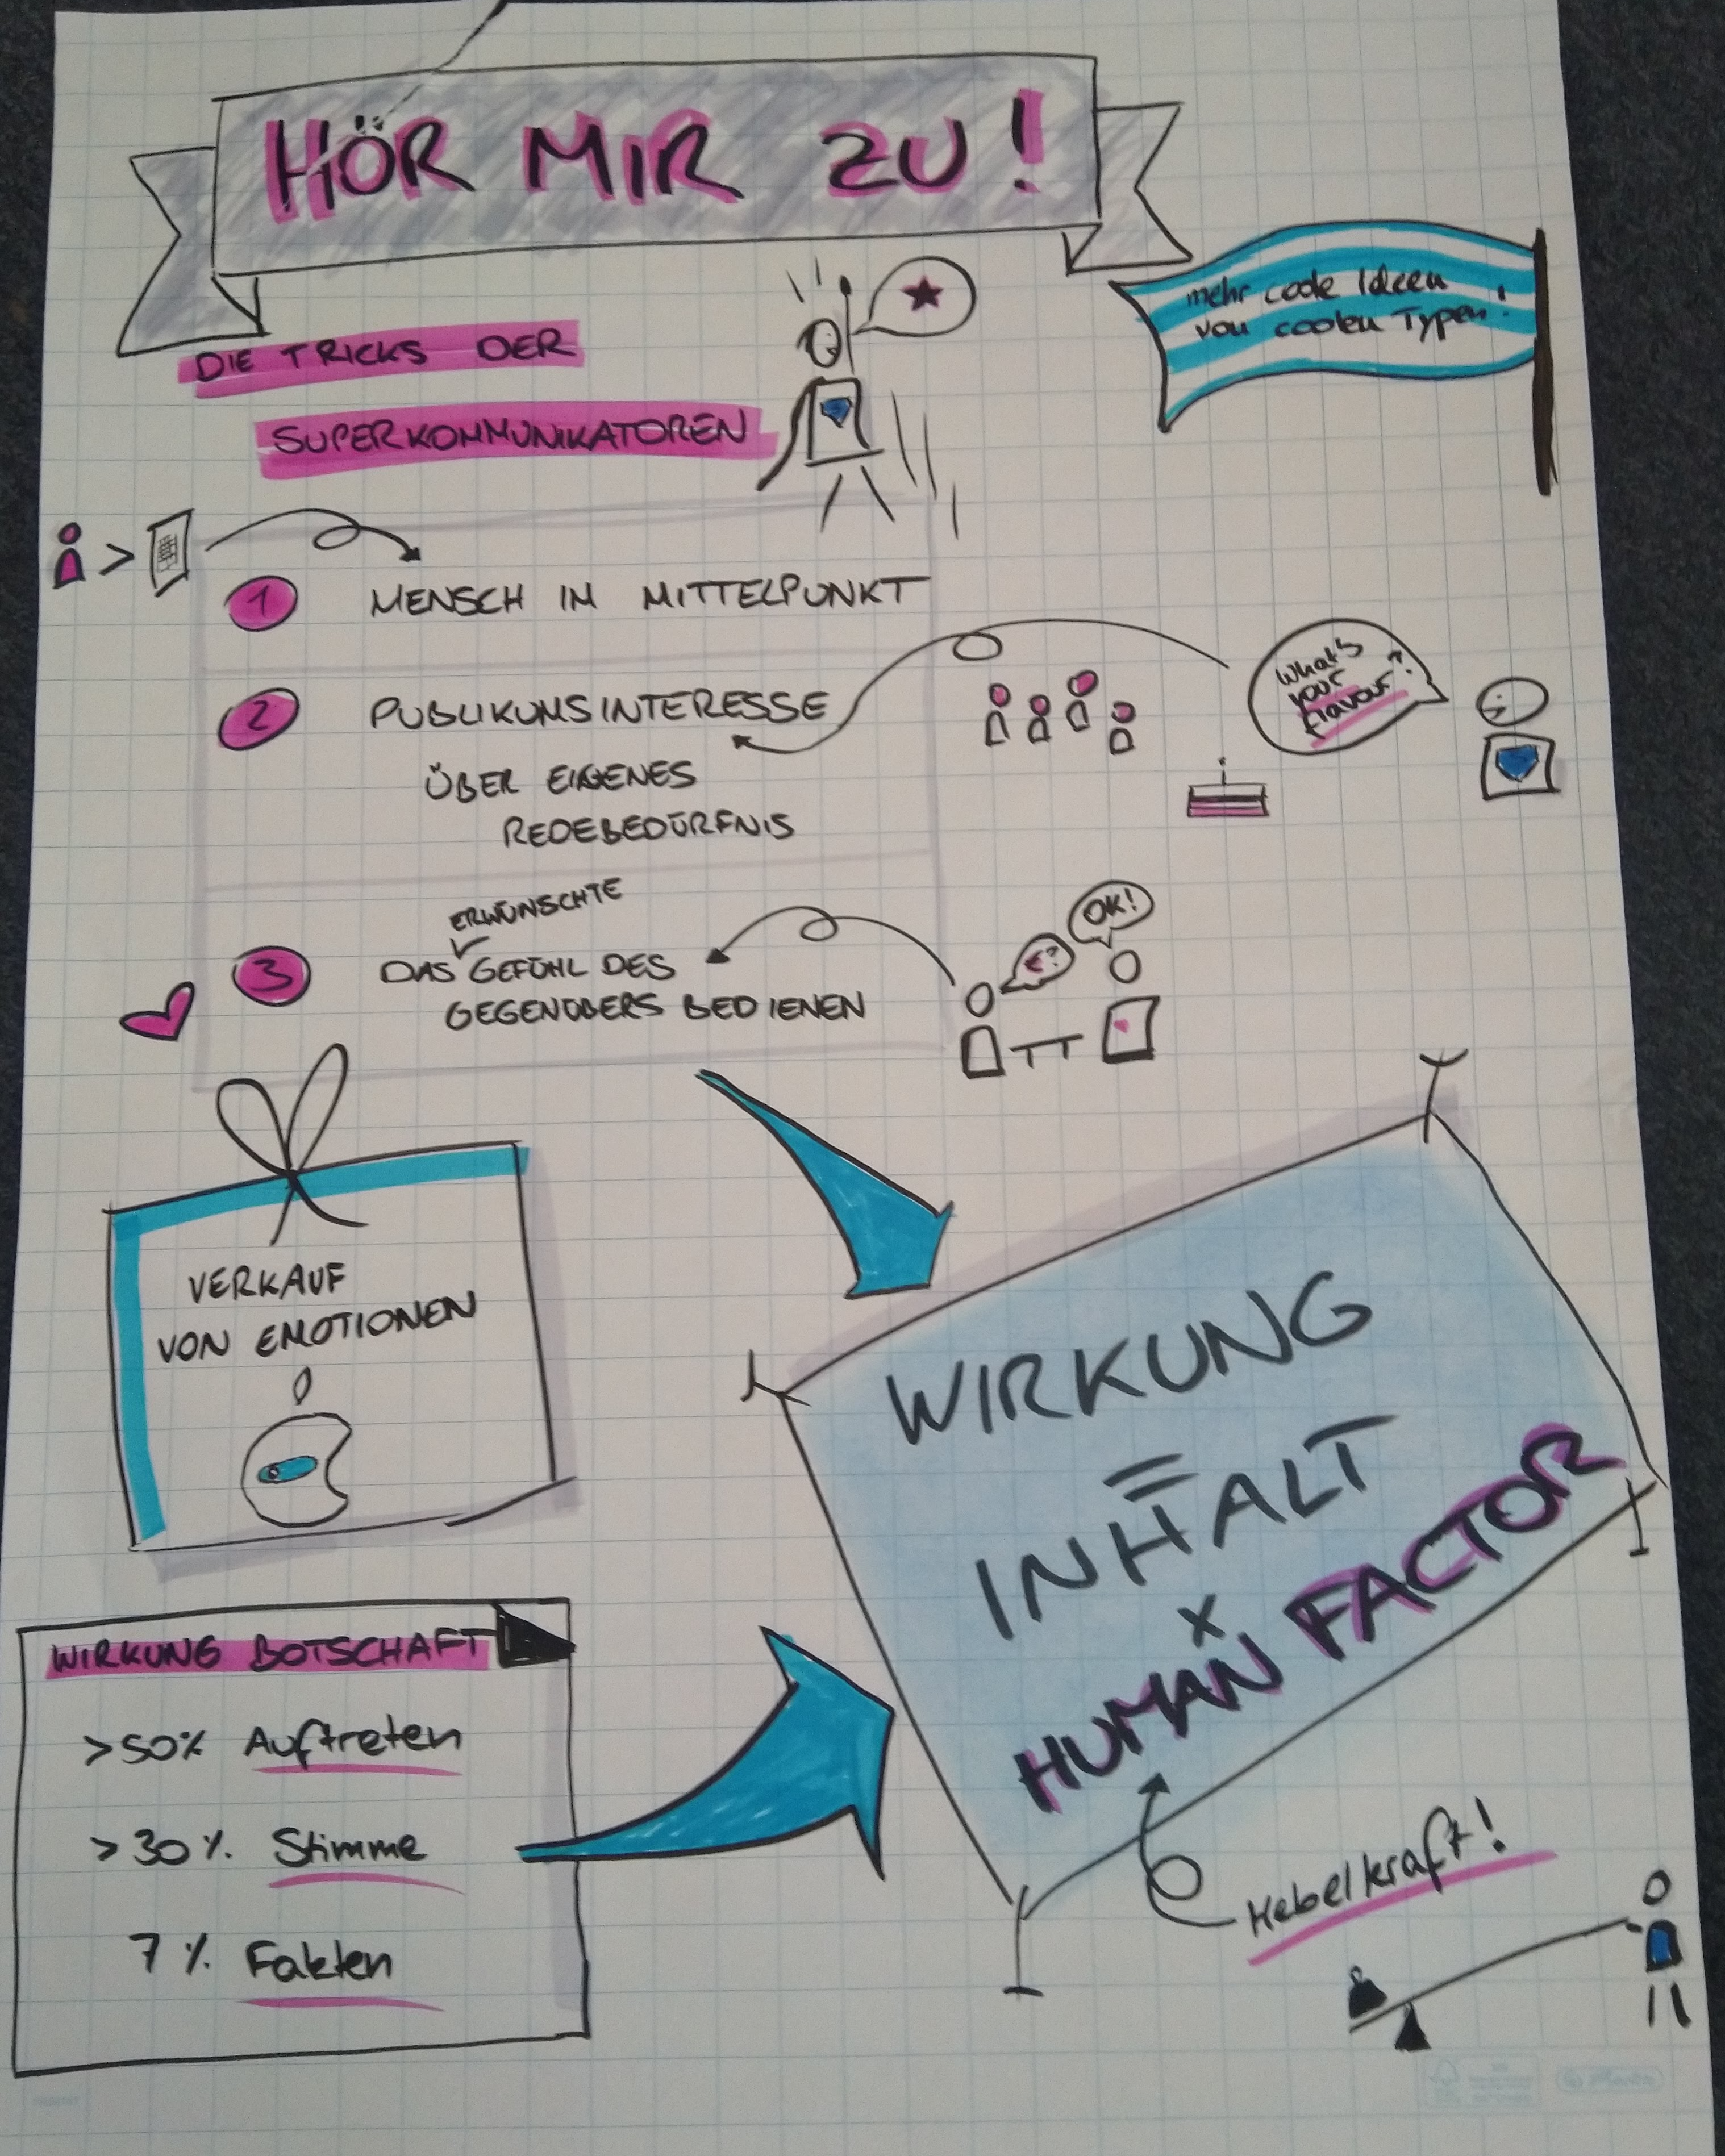 HÖR MIR ZU!
mehr coole Ideen
von coolen Typen!
DIE TRICKS DER
SUPERKOMMUNIKATOREN
>
1 MENSCH IM MITTELPUNKT
2 PUBLIKUMSINTERESSE
ÜBER EIGENES
REDEBEDÜRFNIS
What's
your
flavour?
ERWÜNSCHTE
3 DAS GEFÜHL DES
GEGENÜBERS BEDIENEN
€?
OK!
VERKAUF
VON EMOTIONEN
WIRKUNG
=
INHALT
x
HUMAN FACTOR
Hebelkraft!
WIRKUNG BOTSCHAFT
>50% Auftreten
>30%. Stimme
7%. Fakten